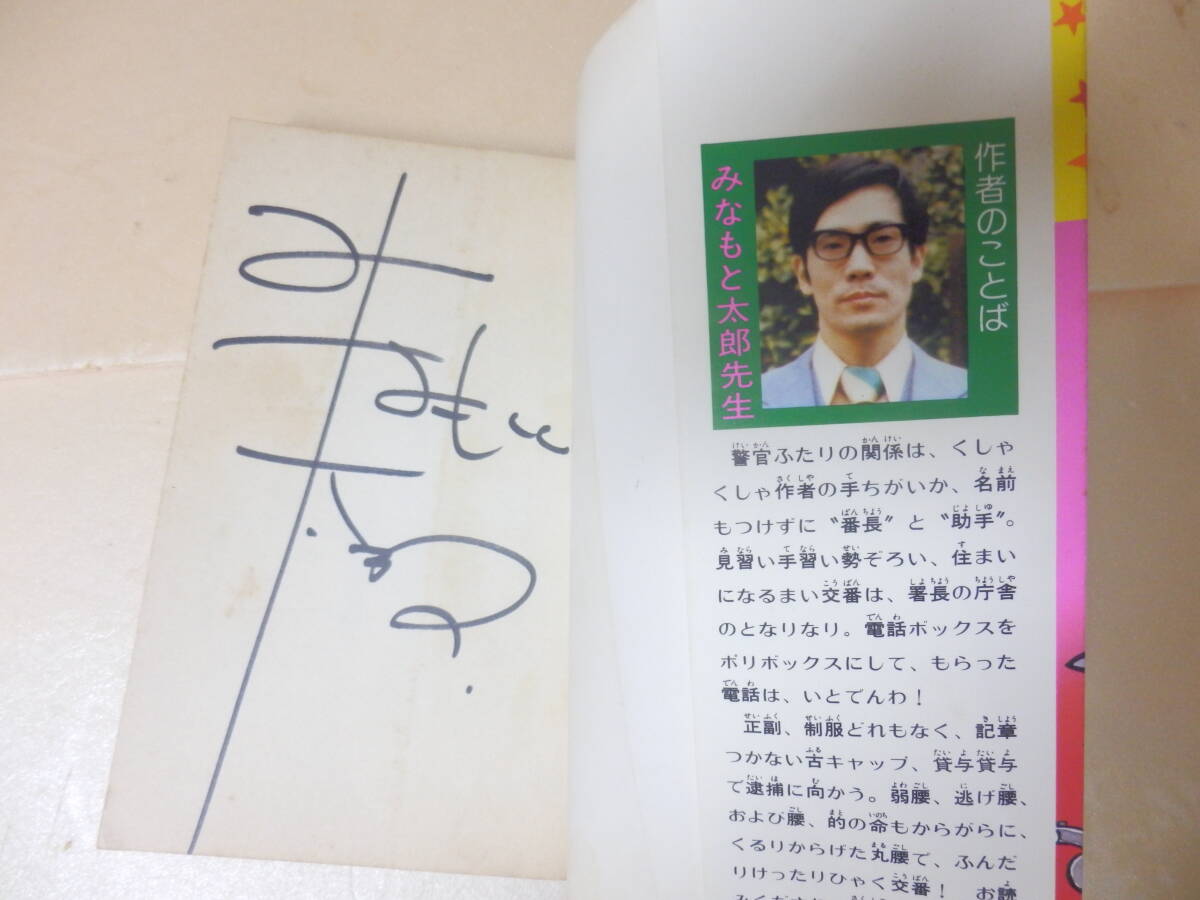 作者のことば
みなもと太郎先生
警官ふたりの関係は、くしゃ
くしゃ作者の手ちがいか、名前
もつけずに〝番長〟と〝助手〟。
見習い手習い勢ぞろい、住まい
になるまい交番は、署長の庁舎
のとなりなり。電話ボックスを
ポリボックスにして、もらった
電話は、いとでんわ！
正副、制服どれもなく、記章
つかない古キャップ、貸与貸与
で逮捕に向かう。弱腰、逃げ腰、
および腰、的の命もからがらに、
くるりからげた丸腰で、ふんだ
りけったりひゃく交番！　お読